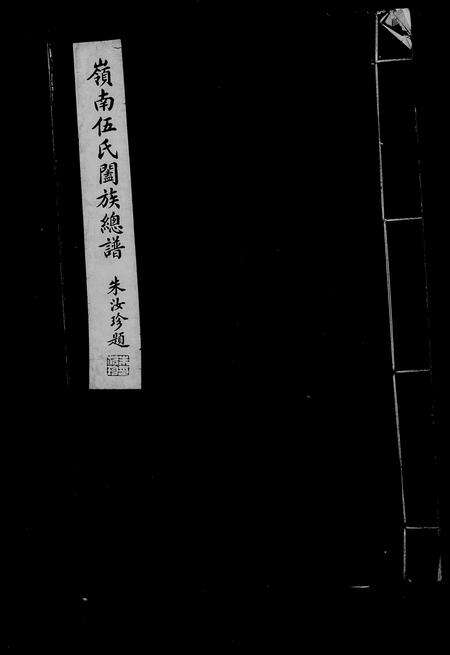 嶺南伍氏闔族總譜
朱汝珍題